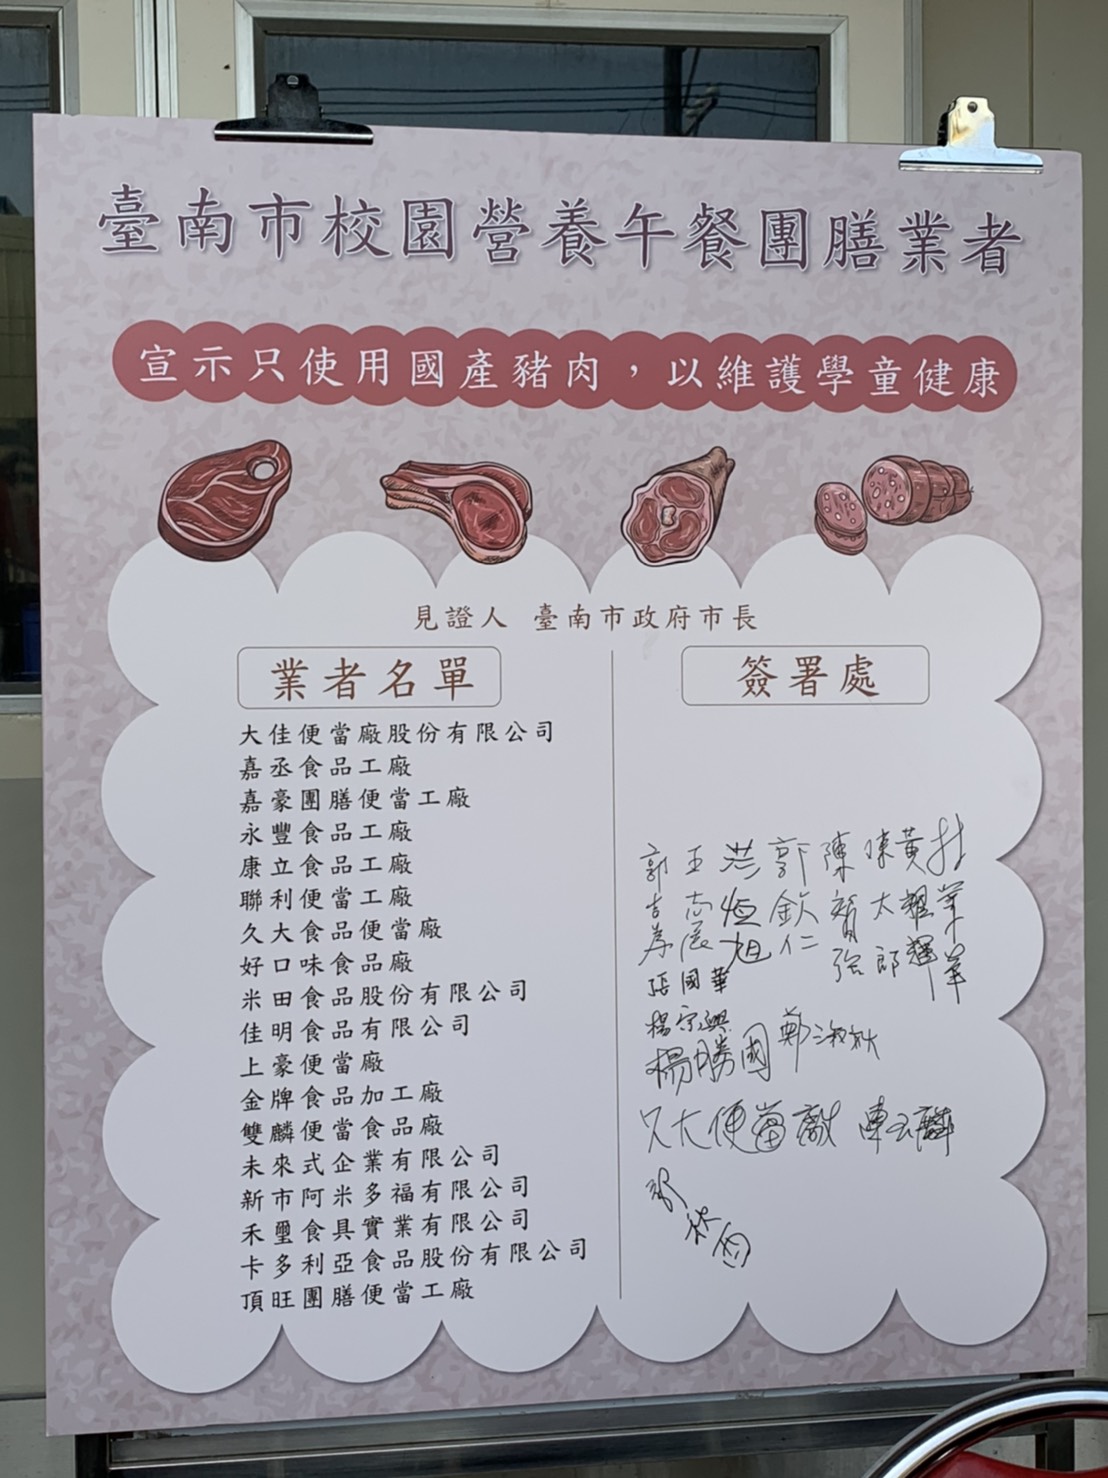 臺南市校園營養午餐團膳業者
宣示只使用國產豬肉，以維護學童健康
見證人 臺南市政府市長
業者名單
大佳便當廠股份有限公司
嘉丞食品工廠
嘉豪團膳便當工廠
永豐食品工廠
康立食品工廠
聯利便當工廠
久大食品便當廠
好口味食品廠
米田食品股份有限公司
佳明食品有限公司
上豪便當廠
金牌食品加工廠
雙麟便當食品廠
未來式企業有限公司
新市阿米多福有限公司
禾璽食具實業有限公司
卡多利亞食品股份有限公司
頂旺團膳便當工廠
簽署處
王志展
洪恒旭
郭欽仁
陳太郎
黃耀輝
張國華
楊宗興
楊勝國
鄭淑秋
久大便當廠